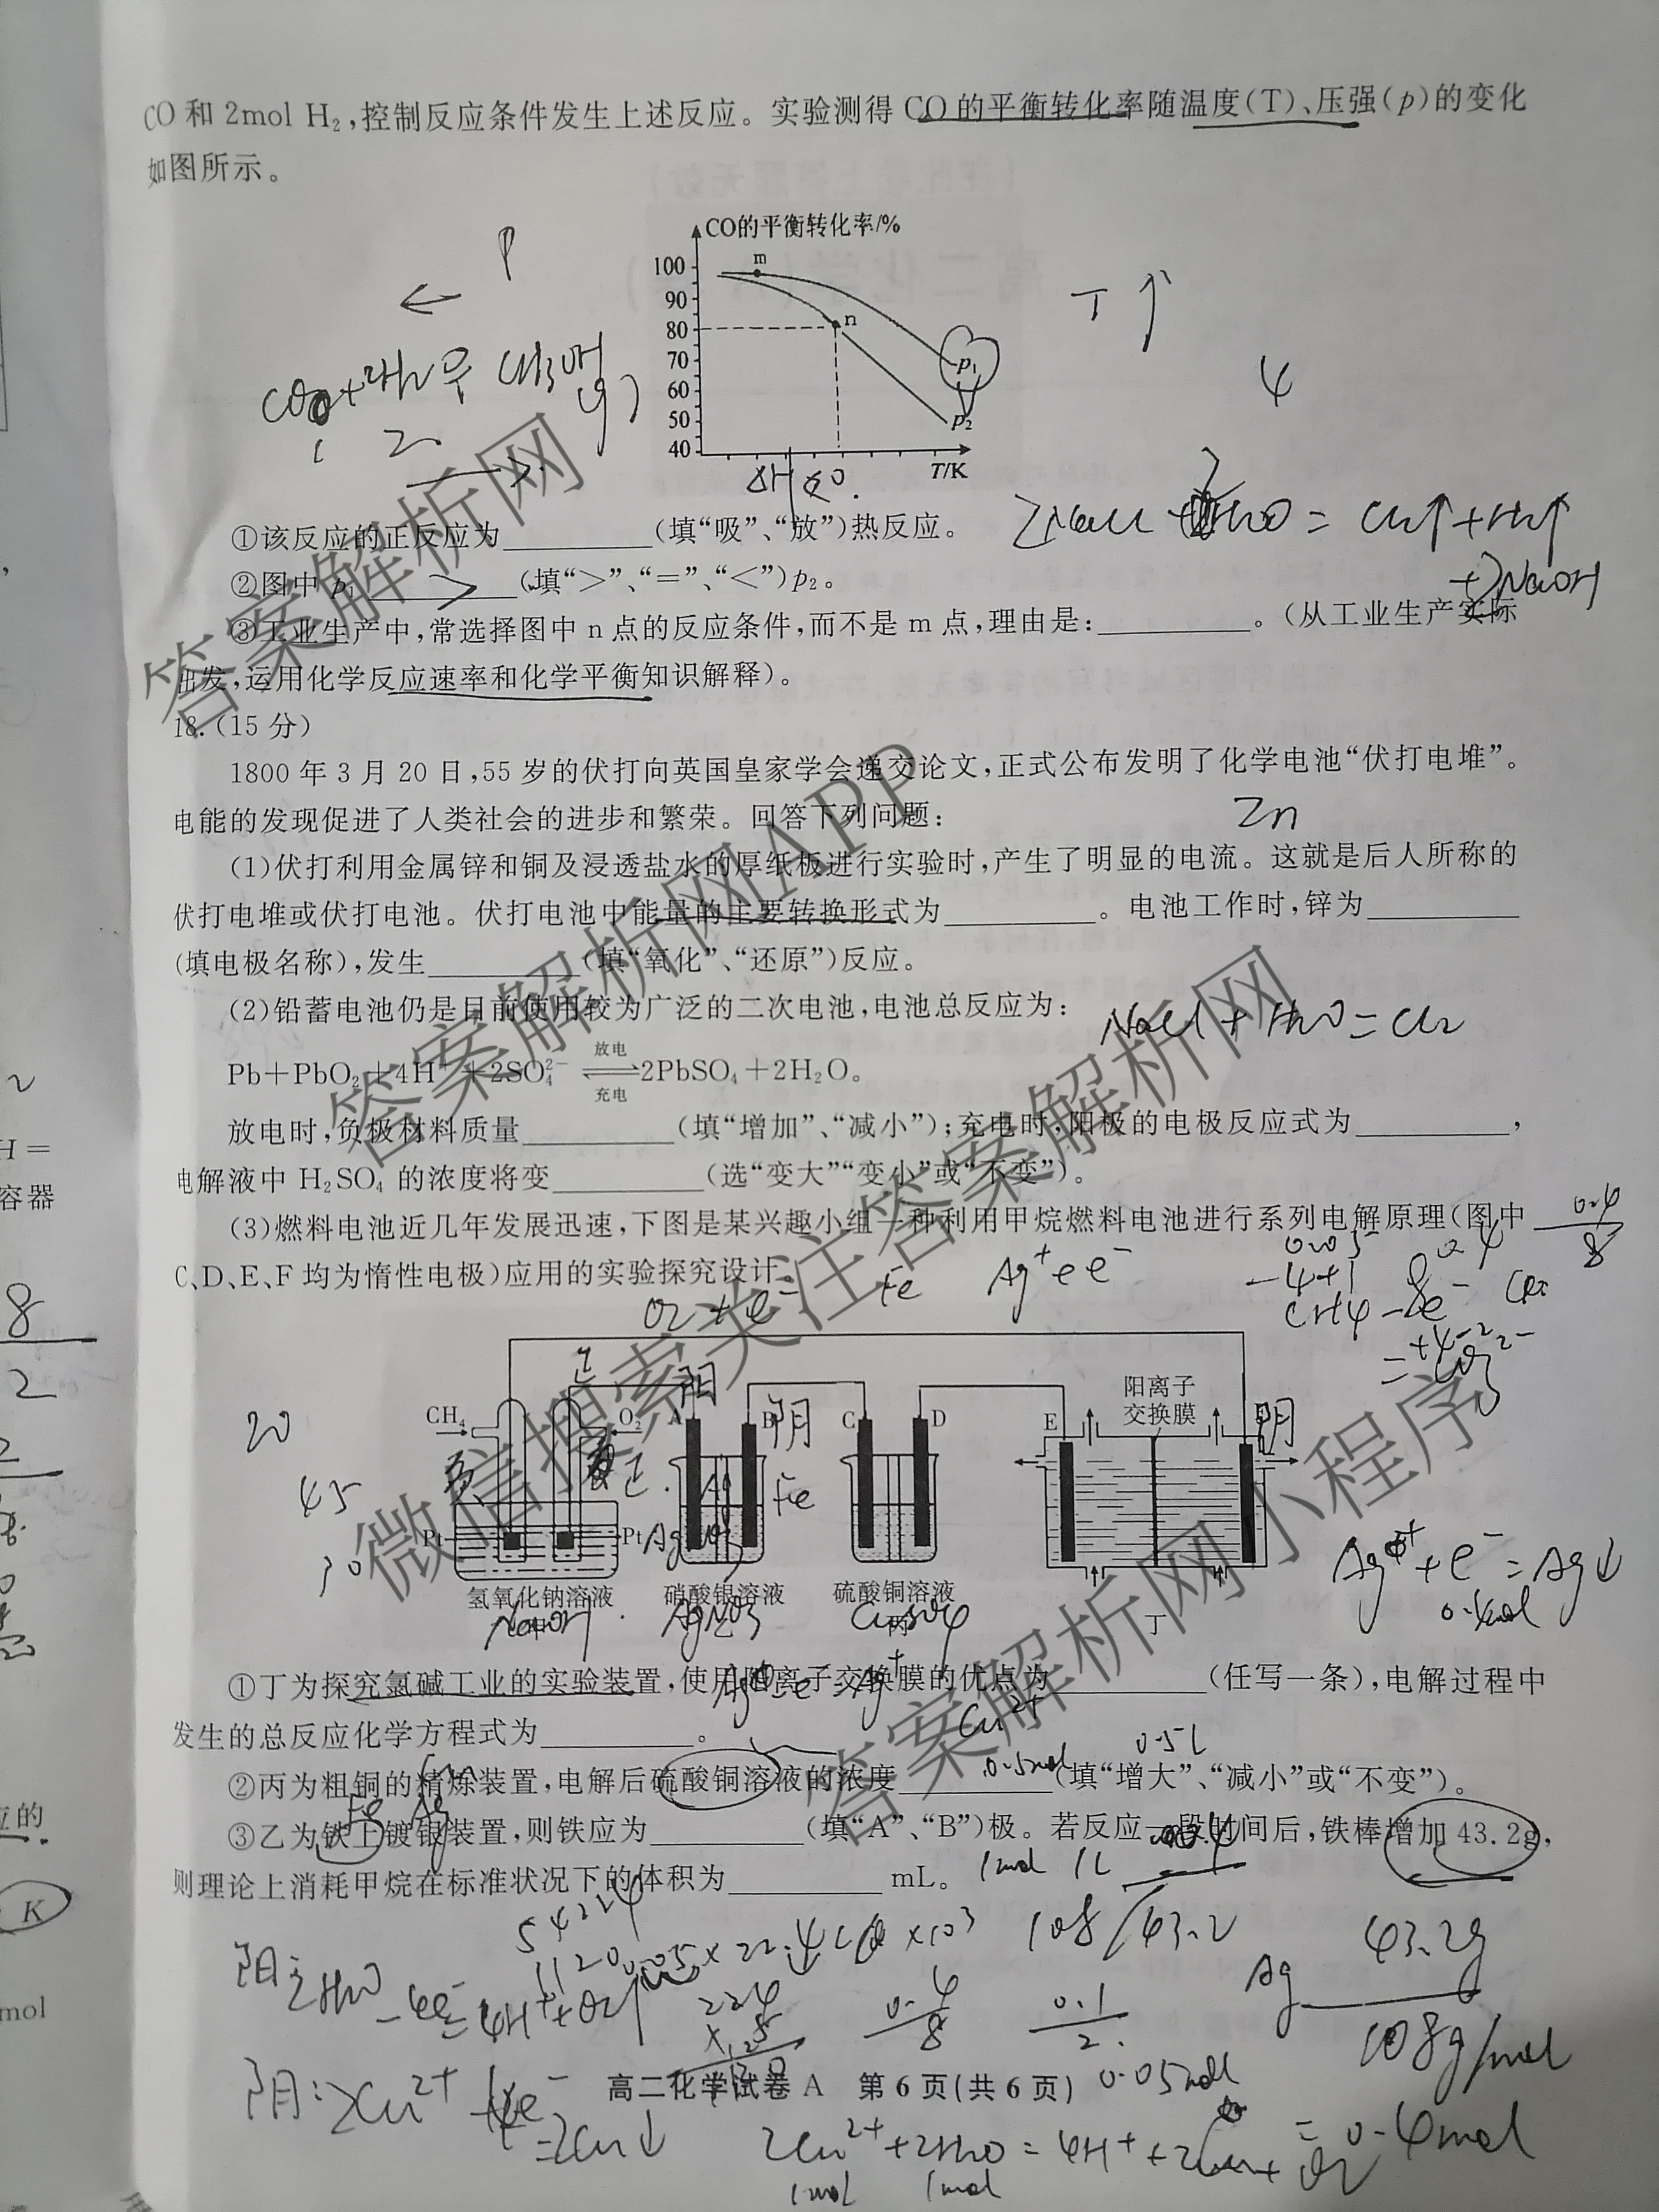 CO和2mol H₂,控制反应条件发生上述反应。实验测得CO的平衡转化率随温度(T)、压强(p)的变化
如图所示。
CO的平衡转化率/%
100
90
80
70
60
50
40
m
n
p₁
p₂
T/K
P
←
T↑
4
ΔH<0.
①该反应的正反应为________(填“吸”、“放”)热反应。
②图中p₁ > (填“>”、“=”、“<”)p₂。
③工业生产中,常选择图中n点的反应条件,而不是m点,理由是:________。(从工业生产实际
出发,运用化学反应速率和化学平衡知识解释)。
18.(15分)
1800年3月20日,55岁的伏打向英国皇家学会递交论文,正式公布发明了化学电池“伏打电堆”。
电能的发现促进了人类社会的进步和繁荣。回答下列问题:
Zn
(1)伏打利用金属锌和铜及浸透盐水的厚纸板进行实验时,产生了明显的电流。这就是后人所称的
伏打电堆或伏打电池。伏打电池中能量的主要转换形式为________。电池工作时,锌为________
(填电极名称),发生________(填“氧化”、“还原”)反应。
(2)铅蓄电池仍是目前使用较为广泛的二次电池,电池总反应为:
NaCl+H₂O=Cl₂
Pb+PbO₂+4H⁺+2SO₄²⁻ 放电⇌充电 2PbSO₄+2H₂O。
放电时,负极材料质量________(填“增加”、“减小”);充电时,阳极的电极反应式为________,
电解液中H₂SO₄的浓度将变________(选“变大”“变小”或“不变”)。
(3)燃料电池近几年发展迅速,下图是某兴趣小组一种利用甲烷燃料电池进行系列电解原理(图中
C、D、E、F均为惰性电极)应用的实验探究设计:
CH₄
O₂
A
B
C
D
E
阳离子
交换膜
阳
阴
阴
Fe
Pt
Pt
氢氧化钠溶液
硝酸银溶液
硫酸铜溶液
NaOH
AgNO₃
CuSO₄
丁
20
45
Ag⁺+e⁻=Ag↓
0.4mol
①丁为探究氯碱工业的实验装置,使用阳离子交换膜的优点为________(任写一条),电解过程中
发生的总反应化学方程式为________。
②丙为粗铜的精炼装置,电解后硫酸铜溶液的浓度________(填“增大”、“减小”或“不变”)。
③乙为铁上镀银装置,则铁应为________(填“A”、“B”)极。若反应一段时间后,铁棒增加43.2g,
则理论上消耗甲烷在标准状况下的体积为________mL。
1mol 1L
108/43.2
Ag 43.2g
108g/mol
0.4
8
0.1
2
0.05mol
=0.4mol
高二化学试卷A 第6页(共6页)
2Cu²⁺+2H₂O=4H⁺+2Cu+O₂
1mol 1mol
答案解析网
答案解析网APP
微信搜索关注答案解析网
答案解析网小程序